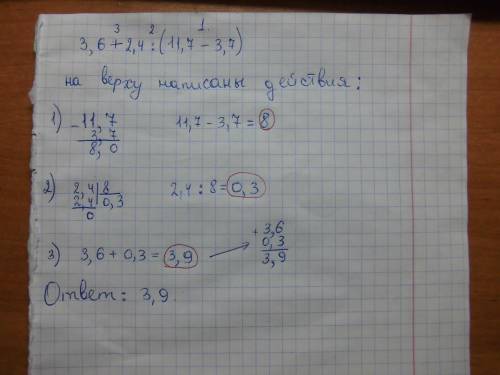 3 2 1.
3,6 + 2,4 : (11,7 - 3,7)
на верху написаны действия:
1) - 11,7 11,7 - 3,7 = 8
3,7
8,0
2) 2,4 | 8 2,4 : 8 = 0,3
2,4 | 0,3
0
3) 3,6 + 0,3 = 3,9 → + 3,6
0,3
3,9
Ответ: 3,9